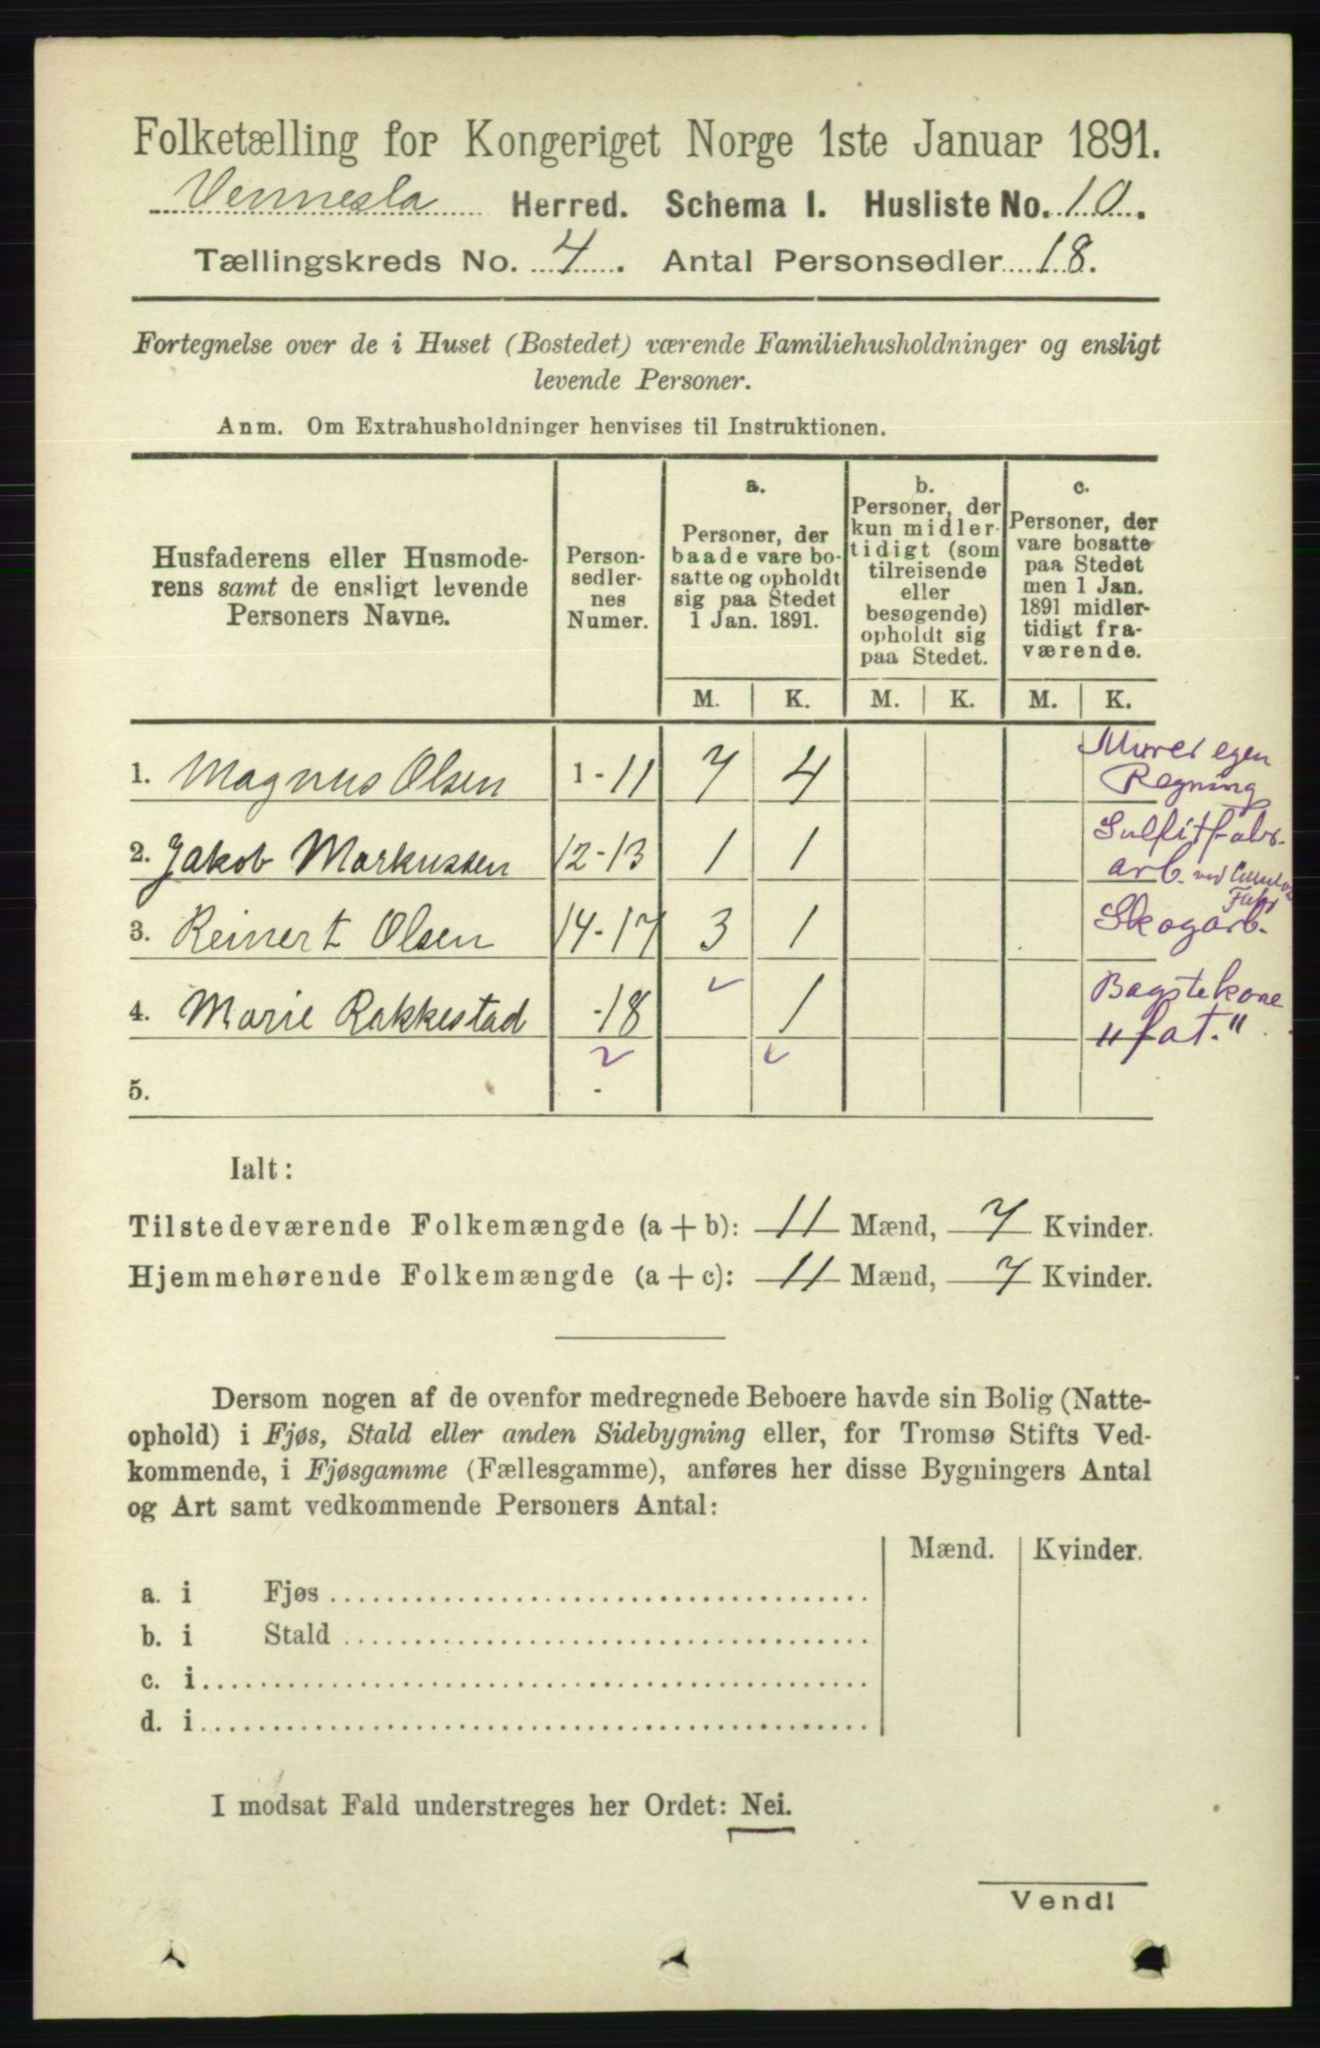 Folketælling for Kongeriget Norge 1ste Januar 1891.
Vennesla Herred. Schema I. Husliste No. 10.
Tællingskreds No. 4. Antal Personsedler 18.
Fortegnelse over de i Huset (Bostedet) værende Familiehusholdninger og ensligt
levende Personer.
Anm. Om Extrahusholdninger henvises til Instruktionen.
Husfaderens eller Husmode-
rens samt de ensligt levende
Personers Navne.
Person-
sedler-
nes
Numer.
a.
Personer, der
baade vare bo-
satte og opholdt
sig paa Stedet
1 Jan. 1891.
b.
Personer, der
kun midler-
tidigt (som
tilreisende
eller
besøgende)
opholdt sig
paa Stedet.
c.
Personer, der
vare bosatte
paa Stedet
men 1 Jan.
1891 midler-
tidigt fra-
værende.
M. K. M. K. M. K.
1. Magnus Olsen 1-11 7 4 Murer egen
Regning
2. Jakob Markussen 12-13 1 1 Sulfitfabr.
arb. ved
3. Reinert Olsen 14-17 3 1 Skogarb.
4. Marie Rakkestad -18 1 Bagstekone
"fat."
5. -
Ialt:
Tilstedeværende Folkemængde (a + b): 11 Mænd, 7 Kvinder.
Hjemmehørende Folkemængde (a + c): 11 Mænd, 7 Kvinder.
Dersom nogen af de ovenfor medregnede Beboere havde sin Bolig (Natte-
ophold) i Fjøs, Stald eller anden Sidebygning eller, for Tromsø Stifts Ved-
kommende, i Fjøsgamme (Fællesgamme), anføres her disse Bygningers Antal
og Art samt vedkommende Personers Antal:
Mænd. Kvinder.
a. i Fjøs
b. i Stald
c. i
d. i
I modsat Fald understreges her Ordet: Nei.
Vend!